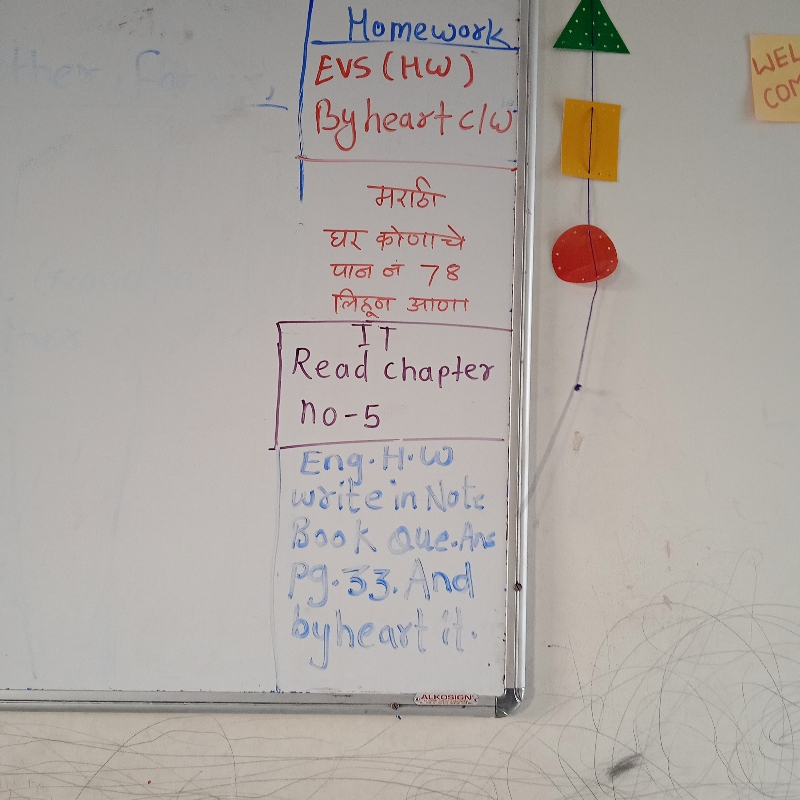 Homework
EVS (HW)
Byheart C/W
मराठी
घर कोणाचे
पान नं 78
लिहून आणा
IT
Read chapter
no-5
Eng. H.W
write in Note
Book Que. Ans
Pg. 33. And
byheart it.
ALKOSIGN
WEL
COM